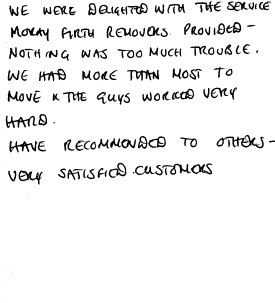 WE WERE DELIGHTED WITH THE SERVICE
MORAY FIRTH REMOVERS. PROVIDED -
NOTHING WAS TOO MUCH TROUBLE.
WE HAD MORE THAN MOST TO
MOVE & THE GUYS WORKED VERY
HARD.
HAVE RECOMMENDED TO OTHERS -
VERY SATISFIED CUSTOMERS